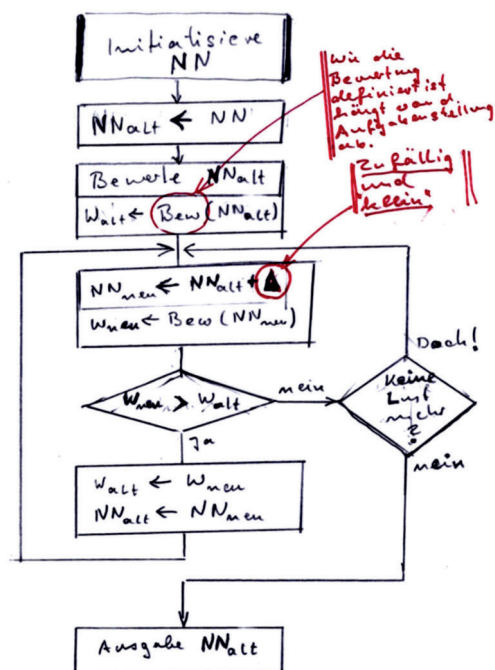 Initialisiere
NN
NNalt ← NN
Bewerte NNalt
Walt ← Bew (NNalt)
Wie die
Bewertung
definiert ist
hängt von d
Aufgabenstellung
ab.
Zufällig
und
"klein"
NNneu ← NNalt + ▲
Wneu ← Bew (NNneu)
Wneu > Walt
nein
ja
Keine
Lust
mehr
?
Doch!
nein
Walt ← Wneu
NNalt ← NNneu
Ausgabe NNalt